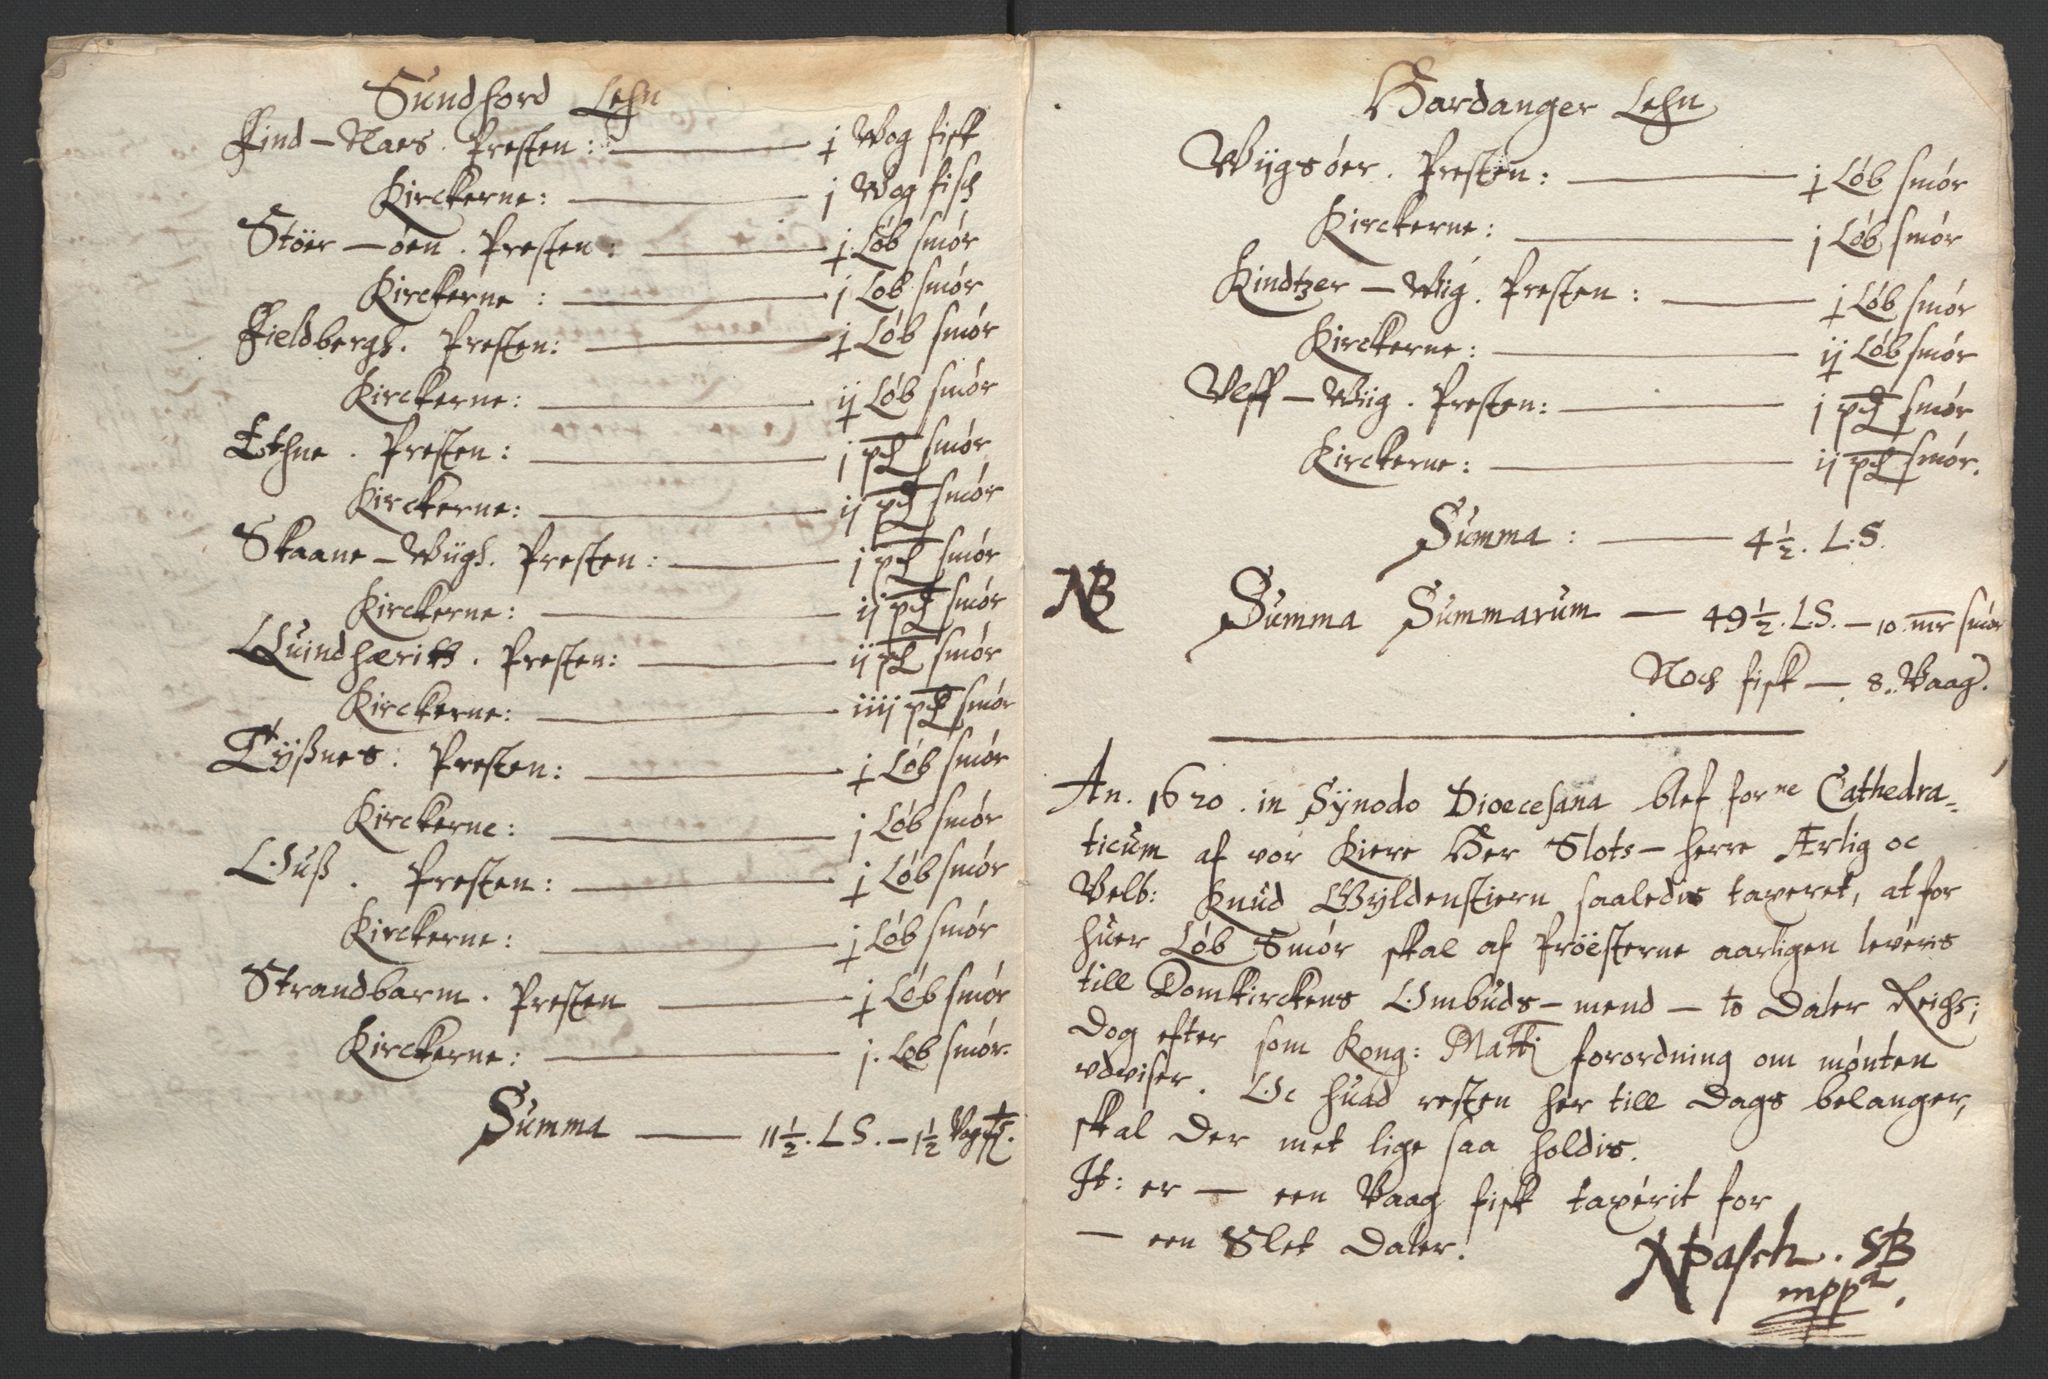 Sundhord Lehn
Find-Naes. Presten: ɉ Wog fisk
Kirckerne: j Wog fisch
Stöer-öen. Presten: ɉ Løb smør
Kirckerne: j Løb smør
Fieldbergh. Presten: ɉ Løb smør
Kirckerne: ij Løb smør
Ethne. Presten: j pd smør
Kirckerne: ij pd smør
Skaane-Wiigh. Presten: j pd smør
Kirckerne: ij pd smør
Quindhæritt. Presten: ij pd smør
Kirckerne: iiij pd smør
Tÿßnes: Presten: ɉ Løb smør
Kirckerne: j Løb smør
Ouß. Presten: ɉ Løb smør
Kirckerne: ɉ Løb smør
Strandbarm. Presten ɉ Løb smør
Kirckerne: j. Løb smør.
Summa 11½. L S. - 1½ Vog f.
Hardanger Lehn
Wiigsöer. Presten: ɉ Løb smør
Kirckerne: j Løb smør
Kindtzer-Wiig. Presten: ɉ Løb smør
Kirckerne: iɉ Løb smør
Vlff-Wiig. Presten: j pd smør
Kirckerne: ij pd smør.
Summa: 4½. L.S.
NB Summa Summarum 49½. L.S. - 10. mr smør
Noch fisk - 8. Vaag.
An. 1620. in Sÿnodo Dioecesana blef forne Cathedra-
ticum af vor Kiere Her Slots-herre Ærlig oc
Velb: Knud Gyldenstiern saaledis taxeret, at for
huer Løb Smør skal af Pröesterne aarligen leveris
till Domkirckens Ombuds-mend - to Daler Reichs;
Dog efter som Kong: Matti forordning om mønten
vdviser. Oc huad resten her till Dags belanger,
skal Der met lige saa holdis.
It: er - een Vaag fisk taxerit for
- een Slet Daler.
NPasch. SB
mppa.